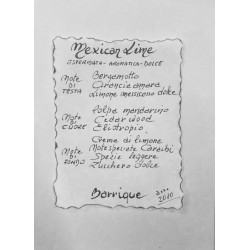 Mexican Lime
ESPERIDATA - AROMATICA - DOLCE
NOTE DI TESTA
Bergamotto
Arancia amara
Limone messicano dolce
NOTE DI CUORE
Polpa mandarino
Cedar wood
Eliotropio
NOTE DI FONDO
Creme di limone
Note speziate Caraibi
Spezie leggere
Zucchero dolce
Barrique
2010